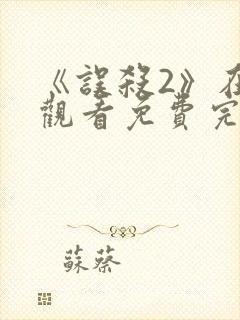 《誤殺2》在
觀看免費完
蘇蔡